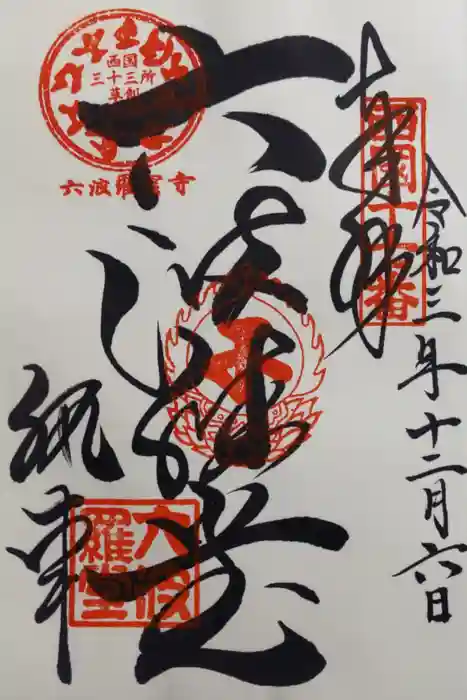 奉拝
西國十七番
令和三年十二月六日
西国
三十三所
草創
六波羅蜜寺
六波羅堂
六波
羅堂
執事